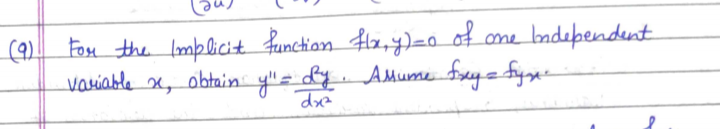 (9) For the Implicit function f(x,y)=0 of one Independent
variable x, obtain y'' = d²y/dx². Assume fxy = fyx.